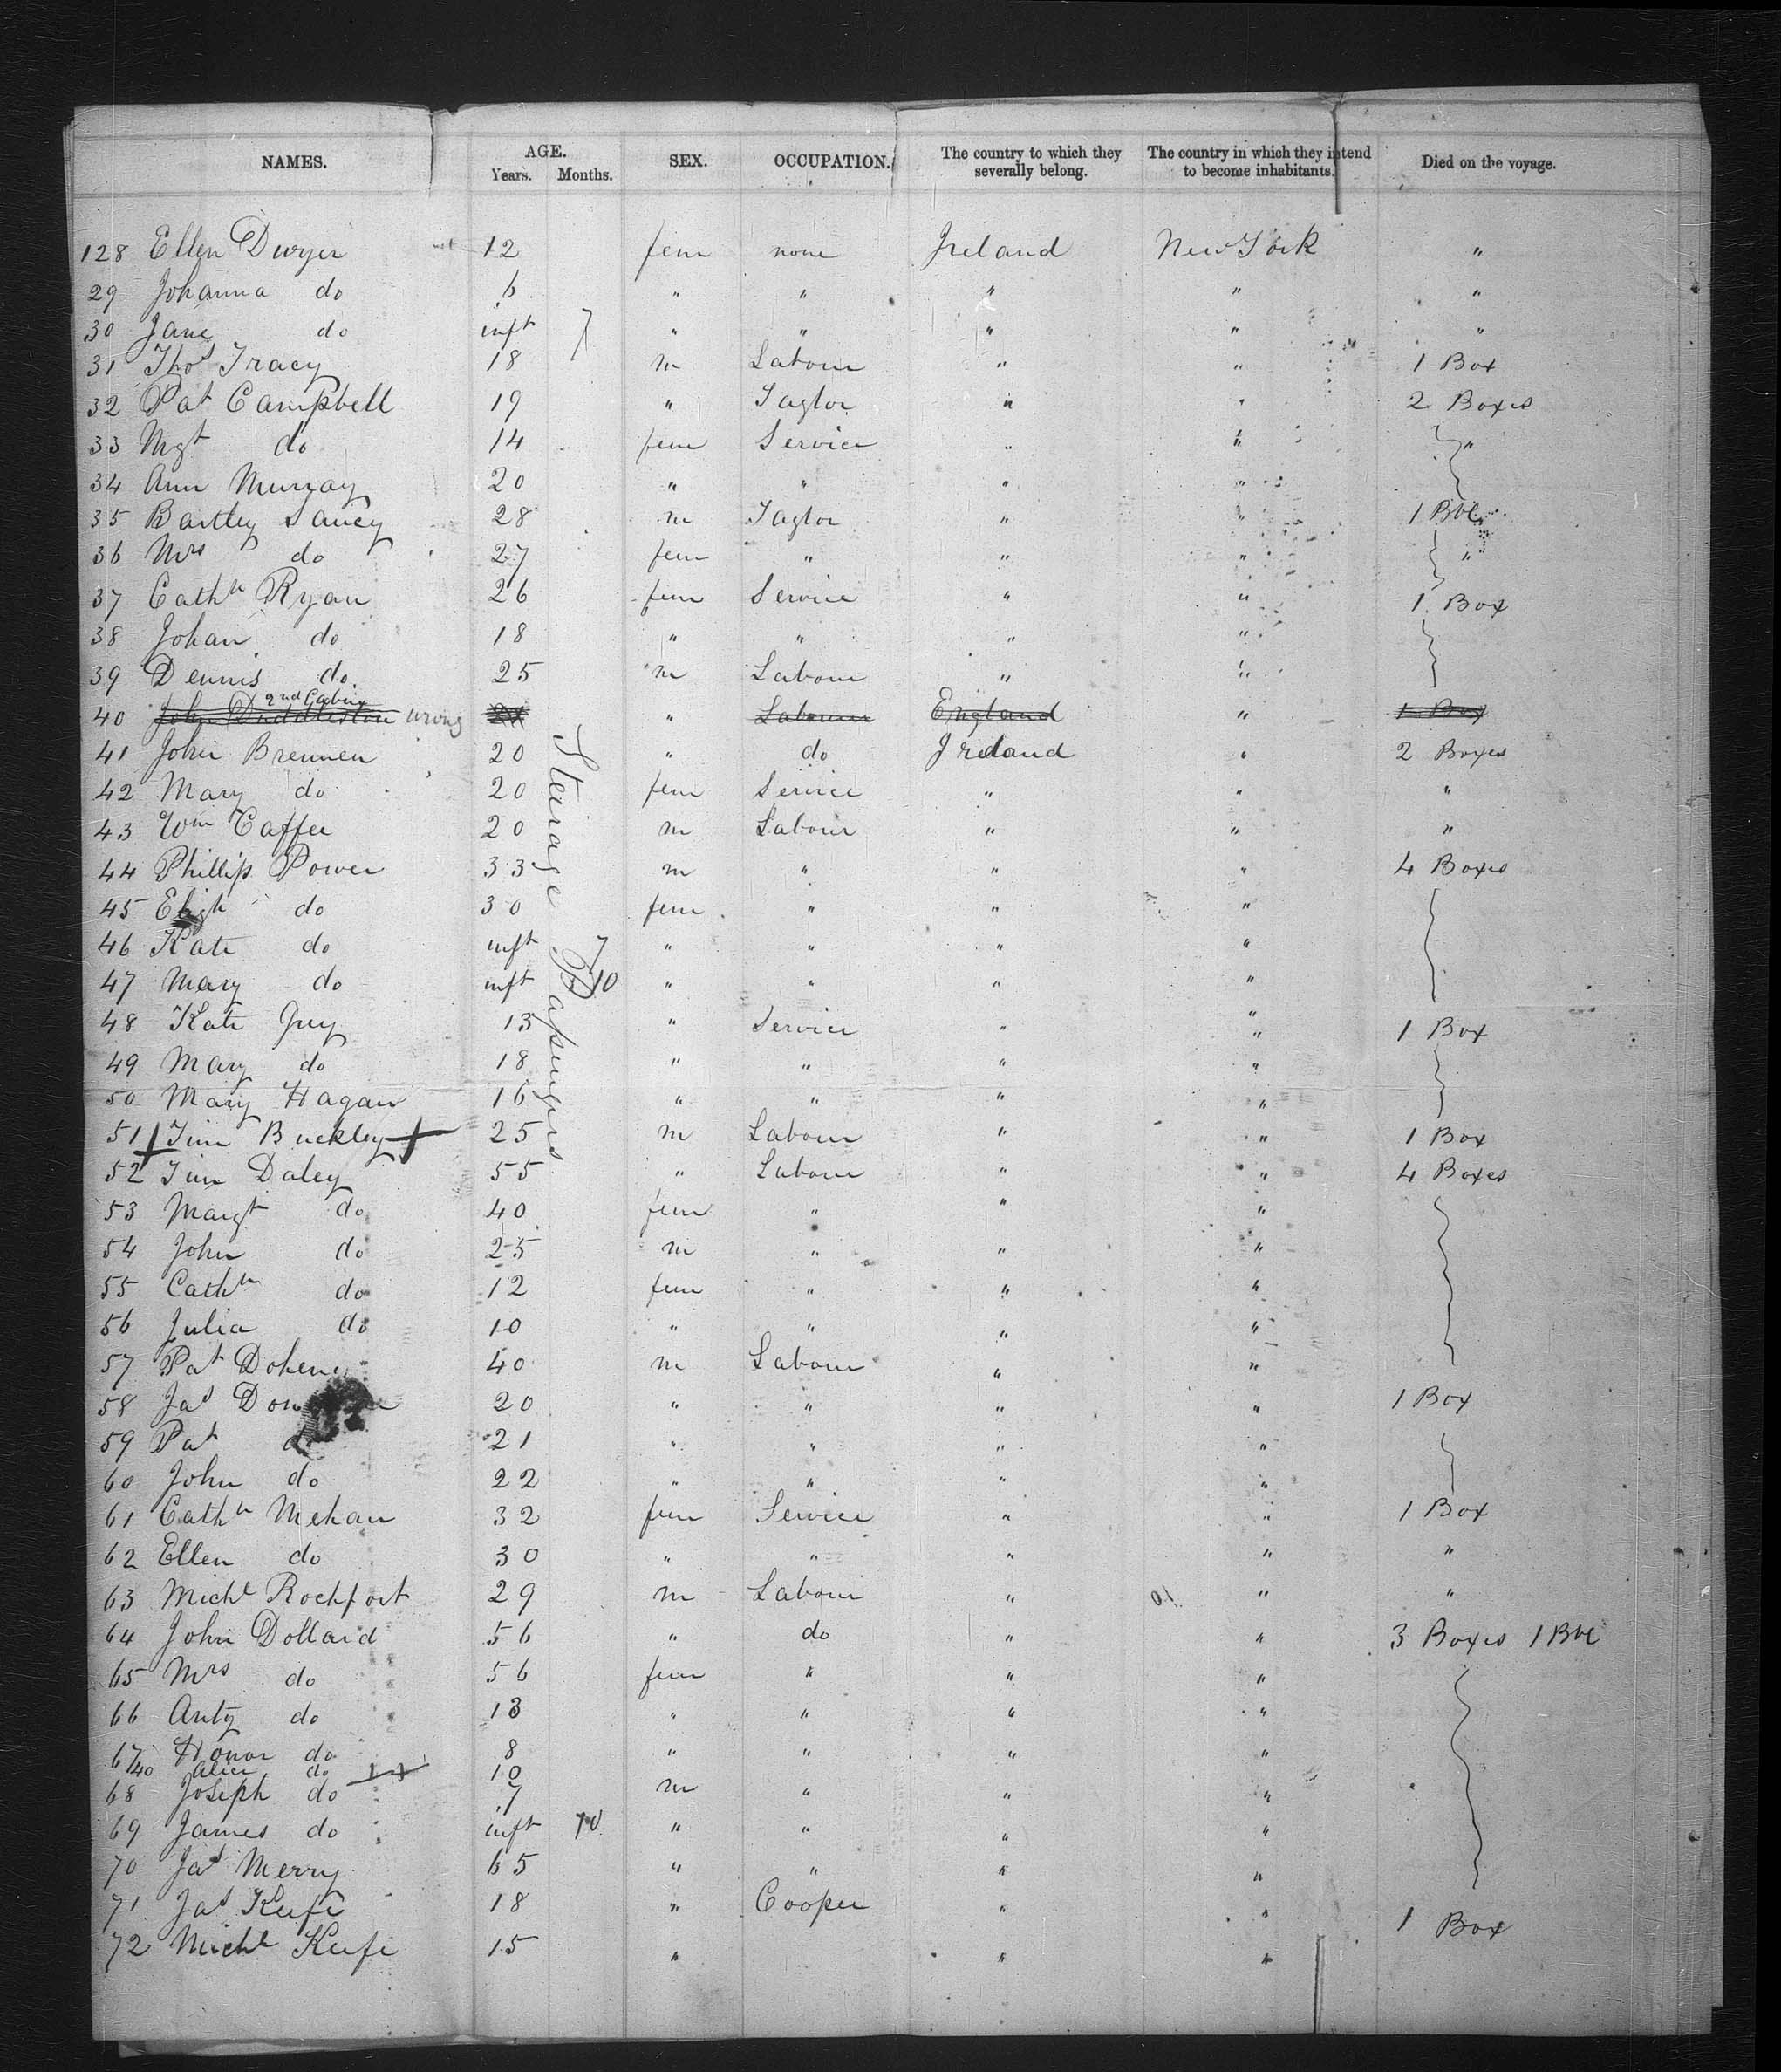 NAMES. AGE. Years. Months. SEX. OCCUPATION. The country to which they severally belong. The country in which they intend to become inhabitants. Died on the voyage.
128 Ellen Dwyer 12 fem none Ireland New York "
29 Johanna do 6 " " " " "
30 Jane do inft 7 " " " " "
31 Thos Tracy 18 m Labour " " 1 Box
32 Pat Campbell 19 " Taylor " " 2 Boxes
33 Mgt do 14 fem Service " " "
34 Ann Murray 20 " " " "
35 Bartley 28 m Taylor " " 1 Bbl
36 Mrs do 27 fem " " " "
37 Cathn Ryan 26 fem Service " " 1 Box
38 Johan do 18 " " " "
39 Dennis do. 25 m Labour " "
2nd Cabin
40 John Duddleston wrong " Labour England " 1 Box
41 John Brennen 20 " do Ireland " 2 Boxes
42 Mary do 20 fem Service " " "
43 Wm Caffee 20 m Labour " " "
44 Phillip Power 33 m " " " 4 Boxes
45 do 30 fem " " "
46 Kate do inft 7 " " " "
47 Mary do inft 10 " " " "
48 Kate Guy 13 " Service " " 1 Box
49 Mary do 18 " " " "
50 Mary Hagan 16 " " " "
51 Tim Buckley 25 m Labour " " 1 Box
Steirage Passengers
52 Tim Daley 55 " Labour " " 4 Boxes
53 Margt do 40 fem " " "
54 John do 25 m " " "
55 Cathn do 12 fem " " "
56 Julia do 10 " " " "
57 Pat 40 m Labour " "
58 Jas 20 " " " " 1 Box
59 Pat 21 " " " "
60 John do 22 " " " "
61 Cathn Mehan 32 fem Service " " 1 Box
62 Ellen do 30 " " " " "
63 Michl Rockfort 29 m Labour " " "
64 John Dollard 56 " do " " 3 Boxes 1 Bbl
65 Mrs do 56 fem " " "
66 Anty do 13 " " " "
67 Honor do 8 " " " "
/40 Alice do 10
68 Joseph do 7 m " " "
69 James do inft 10 " " " "
70 Jas Merry 65 " " " "
71 Jas Keefe 18 " Cooper " " 1 Box
72 Michl Keefe 15 " " "